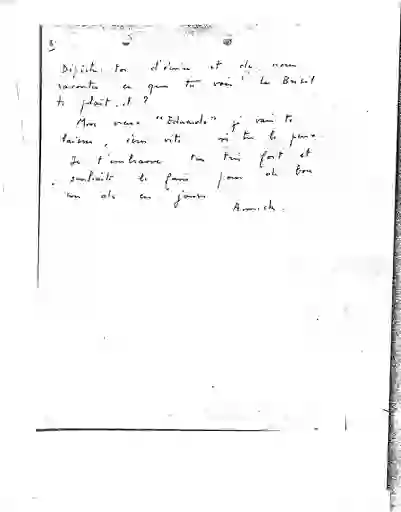 Dépêche toi d'écrire et de nous
raconter ce que tu vois! Le Brésil
te plaît-il ?
Mon vieux "Eduardo" je vais te
laisser, écris vite si tu le peux
Je t'embrasse très fort et
souhaite le faire pour de bon
un de ces jours
Annick.